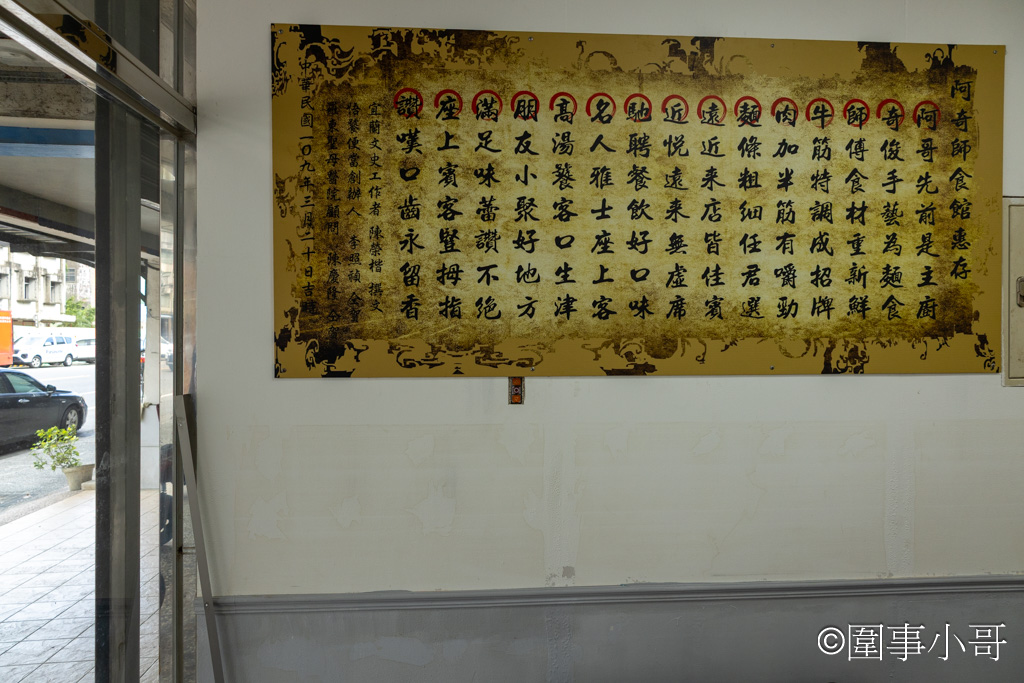 阿奇師食館惠存
阿哥先前是主廚
奇俊手藝為麵食
師傅食材重新鮮
牛筋特調成招牌
肉加半筋有嚼勁
麵條粗細任君選
遠近来店皆佳賓
近悅遠来無虛席
馳聘餐飲好口味
名人雅士座上客
高湯饕客口生津
朋友小聚好地方
滿足味蕾讚不絕
座上賓客豎拇指
讚嘆口齒永留香
宜蘭文史工作者 陳榮楷 撰文
悟饕便當創辦人 李照禎
羅東聖母醫院顧問 陳慶隆
中華民國一〇九年三月二十日吉
©圍事小哥